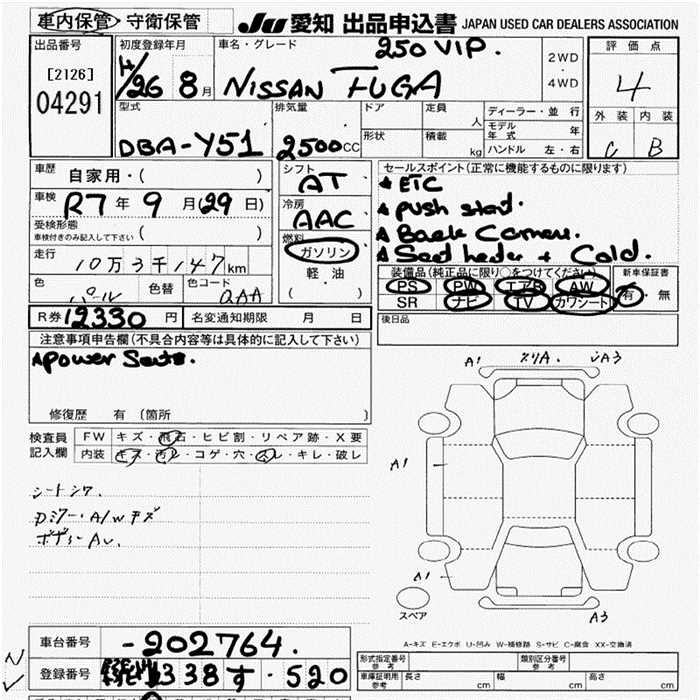 車内保管・守衛保管
JU 愛知 出品申込書 JAPAN USED CAR DEALERS ASSOCIATION
出品番号
[2126]
04291
初度登録年月
H/26 8月
車名・グレード
250 VIP.
NISSAN FUGA
2WD
・
4WD
評価点
4
外装 内装
C B
型式
DBA-Y51
排気量
2500cc
ドア
定員
人
形状
積載
kg
ディーラー・並行
モデル年式 年
ハンドル 左・右
車歴 自家用・( )
車検 R7年9月(29日)
受検形態
車検付きのみ記入して下さい ( )
走行 10万3千147km
色 パール 色替 色コード QAA
R券 12330円 名変通知期限 月 日
シフト
AT
冷房
AAC
燃料
ガソリン
・
軽油
( )
セールスポイント(正常に機能するものに限ります)
ETC
push start.
Back Camera.
Seat heater + Cold.
装備品(純正品に限り○をつけてください)
PS PW エアB AW
SR ナビ TV カワシート
新車保証書
有・無
後日品
注意事項申告欄(不具合内容等は具体的に記入して下さい)
power Seats.
修復歴 有 (箇所 )
検査員記入欄
FW キズ・飛石・ヒビ割・リペア跡・X要
内装 キズ・汚レ・コゲ・穴・スレ・キレ・破レ
シートシワ.
A/Wキズ
A1
A3
A1
A1
A3
スペア
A-キズ E-エクボ U-凹み W-補修跡 S-サビ C-腐食 XX-交換済
車台番号 -202764.
登録番号 338 す・520
形式指定番号
参考
類別区分番号
参考
車庫証明用
参考
長さ cm 幅 cm 高さ cm